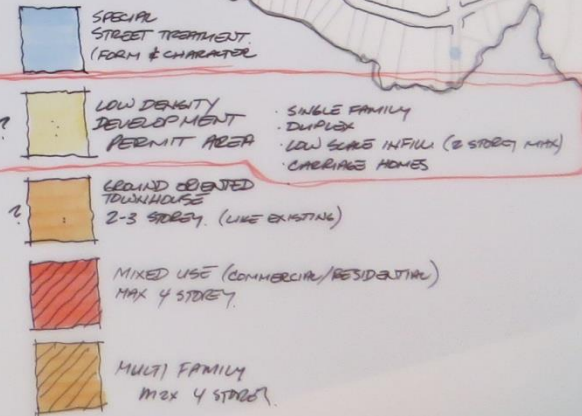 SPECIAL
STREET TREATMENT.
(FORM & CHARACTER
?
LOW DENSITY
DEVELOPMENT
PERMIT AREA
· SINGLE FAMILY
· DUPLEX
· LOW SCALE INFILL (2 STOREY MAX)
· CARRIAGE HOMES
?
GROUND ORIENTED
TOWNHOUSE
2-3 STOREY. (LIKE EXISTING)
MIXED USE (COMMERCIAL/RESIDENTIAL)
MAX 4 STOREY.
MULTI FAMILY
MAX 4 STOREY.